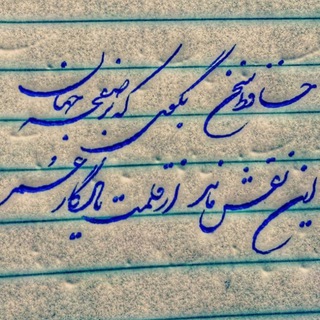 حافظ سخن بگوی که بر صفحه جهان
این نقش ماند از قلمت یادگار عمر